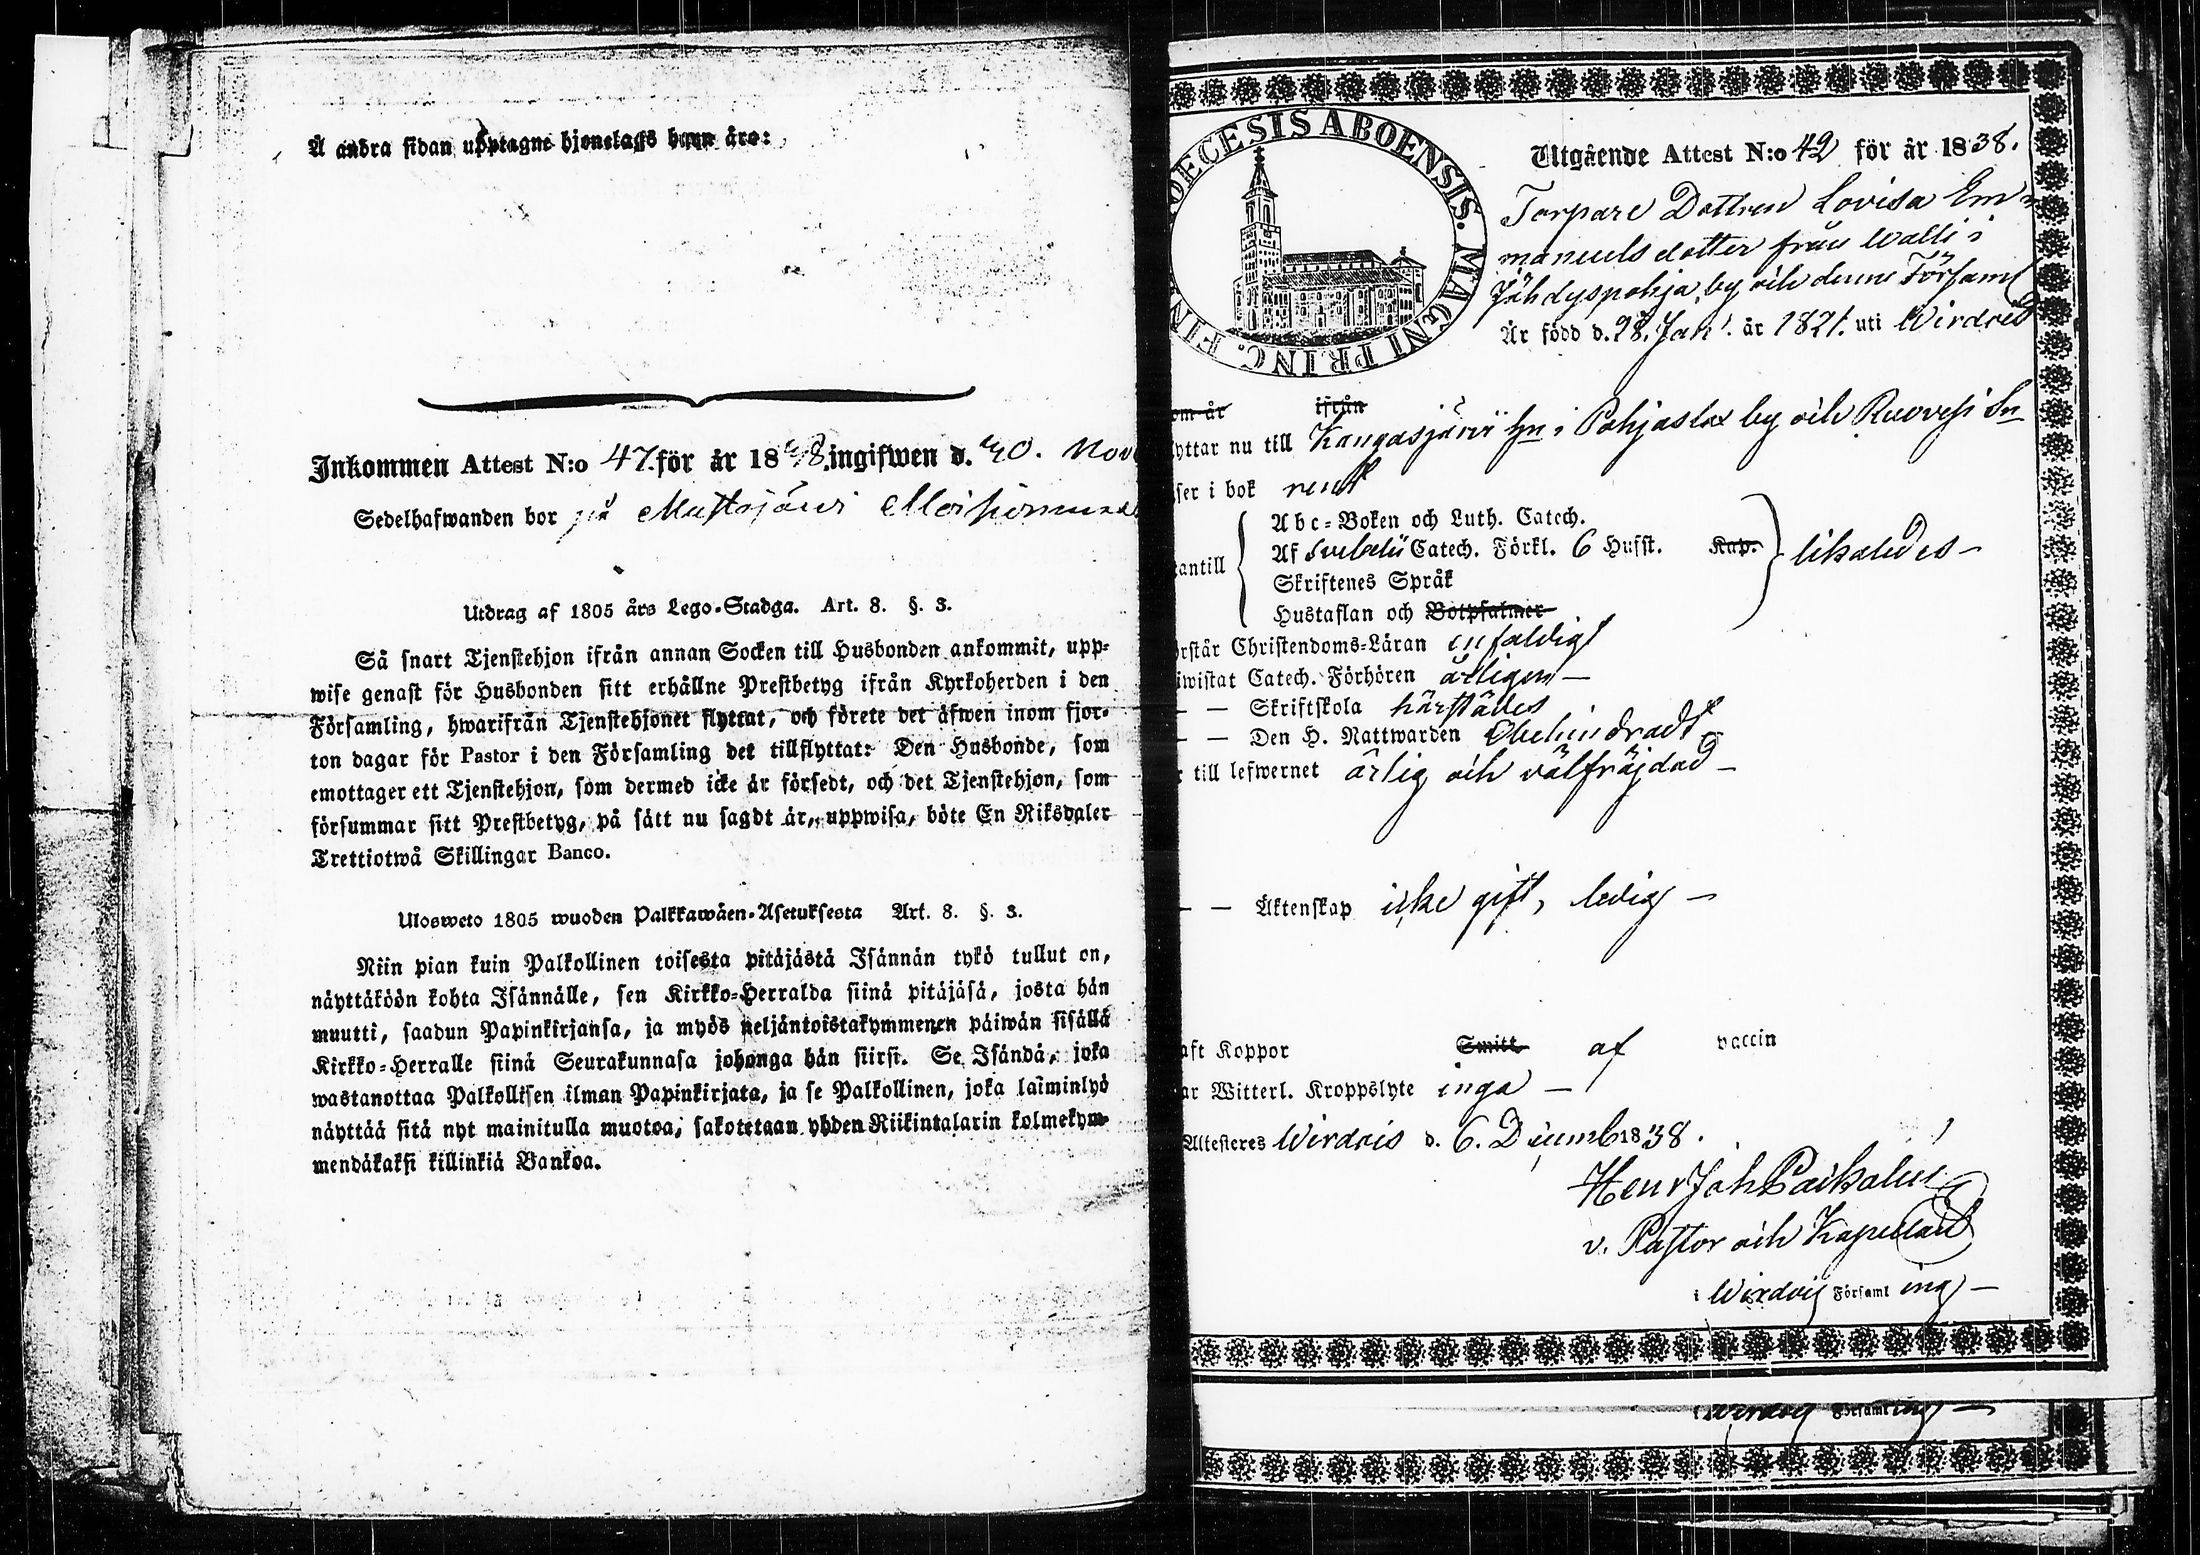 Å andra sidan upptagne hjonelags barn äro:
Inkommen Attest N:o 47. för år 1838. ingifwen d. 30. Nov
Sedelhafwanden bor på
Utdrag af 1805 års Lego-Stadga. Art. 8. §. 3.
Så snart Tjenstehjon ifrån annan Socken till Husbonden ankommit, upp-
wise genast för Husbonden sitt erhållne Prestbetyg ifrån Kyrkoherden i den
Församling, hwarifrån Tjenstehjonet flyttat, och förete det äfwen inom fjor-
ton dagar för Pastor i den Församling det tillflyttat: Den Husbonde, som
emottager ett Tjenstehjon, som dermed icke är försedt, och det Tjenstehjon, som
försummar sitt Prestbetyg, på sätt nu sagdt är, uppwisa, böte En Riksdaler
Trettiotwå Skillingar Banco.
Ulosweto 1805 wuoden Palkkawäen-Asetuksesta Art. 8. §. 3.
Niin pian kuin Palkollinen toisesta pitäjästä Isännän tykö tullut on,
näyttäköön kohta Isännälle, sen Kirkko-Herralda siinä pitäjäsä, josta hän
muutti, saadun Papinkirjansa, ja myös neljäntoistakymmenen päiwän sisällä
Kirkko-Herralle siinä Seurakunnasa johonga hän siirsi. Se Isändä, joka
wastanottaa Palkollisen ilman Papinkirjata, ja se Palkollinen, joka laiminlyö
näyttää sitä nyt mainitulla muotoa, sakotetaan yhden Riikintalarin kolmekym-
mendäkaksi killinkiä Bankoa.
DIOECESIS ABOENSIS. MAGNI PRINC. FIN
Utgående Attest N:o 42 för år 1838.
Torpare Dottren Lovisa Em-
manuelsdotter från Walli i
Jähdyspohja by och denne Församl
Är född d. 28. Jan. år 1821. uti Wirdois
om år ifrån
yttar nu till Kangasjärvi hn i Pohjaslax by och Ruovesi Sn
ser i bok rent
antill
Abc-Boken och Luth. Catech.
Af Svebelii Catech. Förkl. 6 Hufst. Kap. likaledes —
Skriftenes Språk
Hustaflan och Botpsalmer
rstår Christendoms-Läran enfaldigt
iwistat Catech. Förhören årligen —
— — Skriftskola härstädes
— — Den H. Nattwarden Obehindradt
r till lefwernet ärlig och välfräjdad —
— — Äktenskap icke gift, ledig —
aft Koppor Smitt af vaccin
ar Witterl. Kroppslyte inga —
Attesteres Wirdois d. 6. Decemb 1838.
Henr Joh
v. Pastor och Kapellan
i Wirdois Församl ing —
Församl ing —